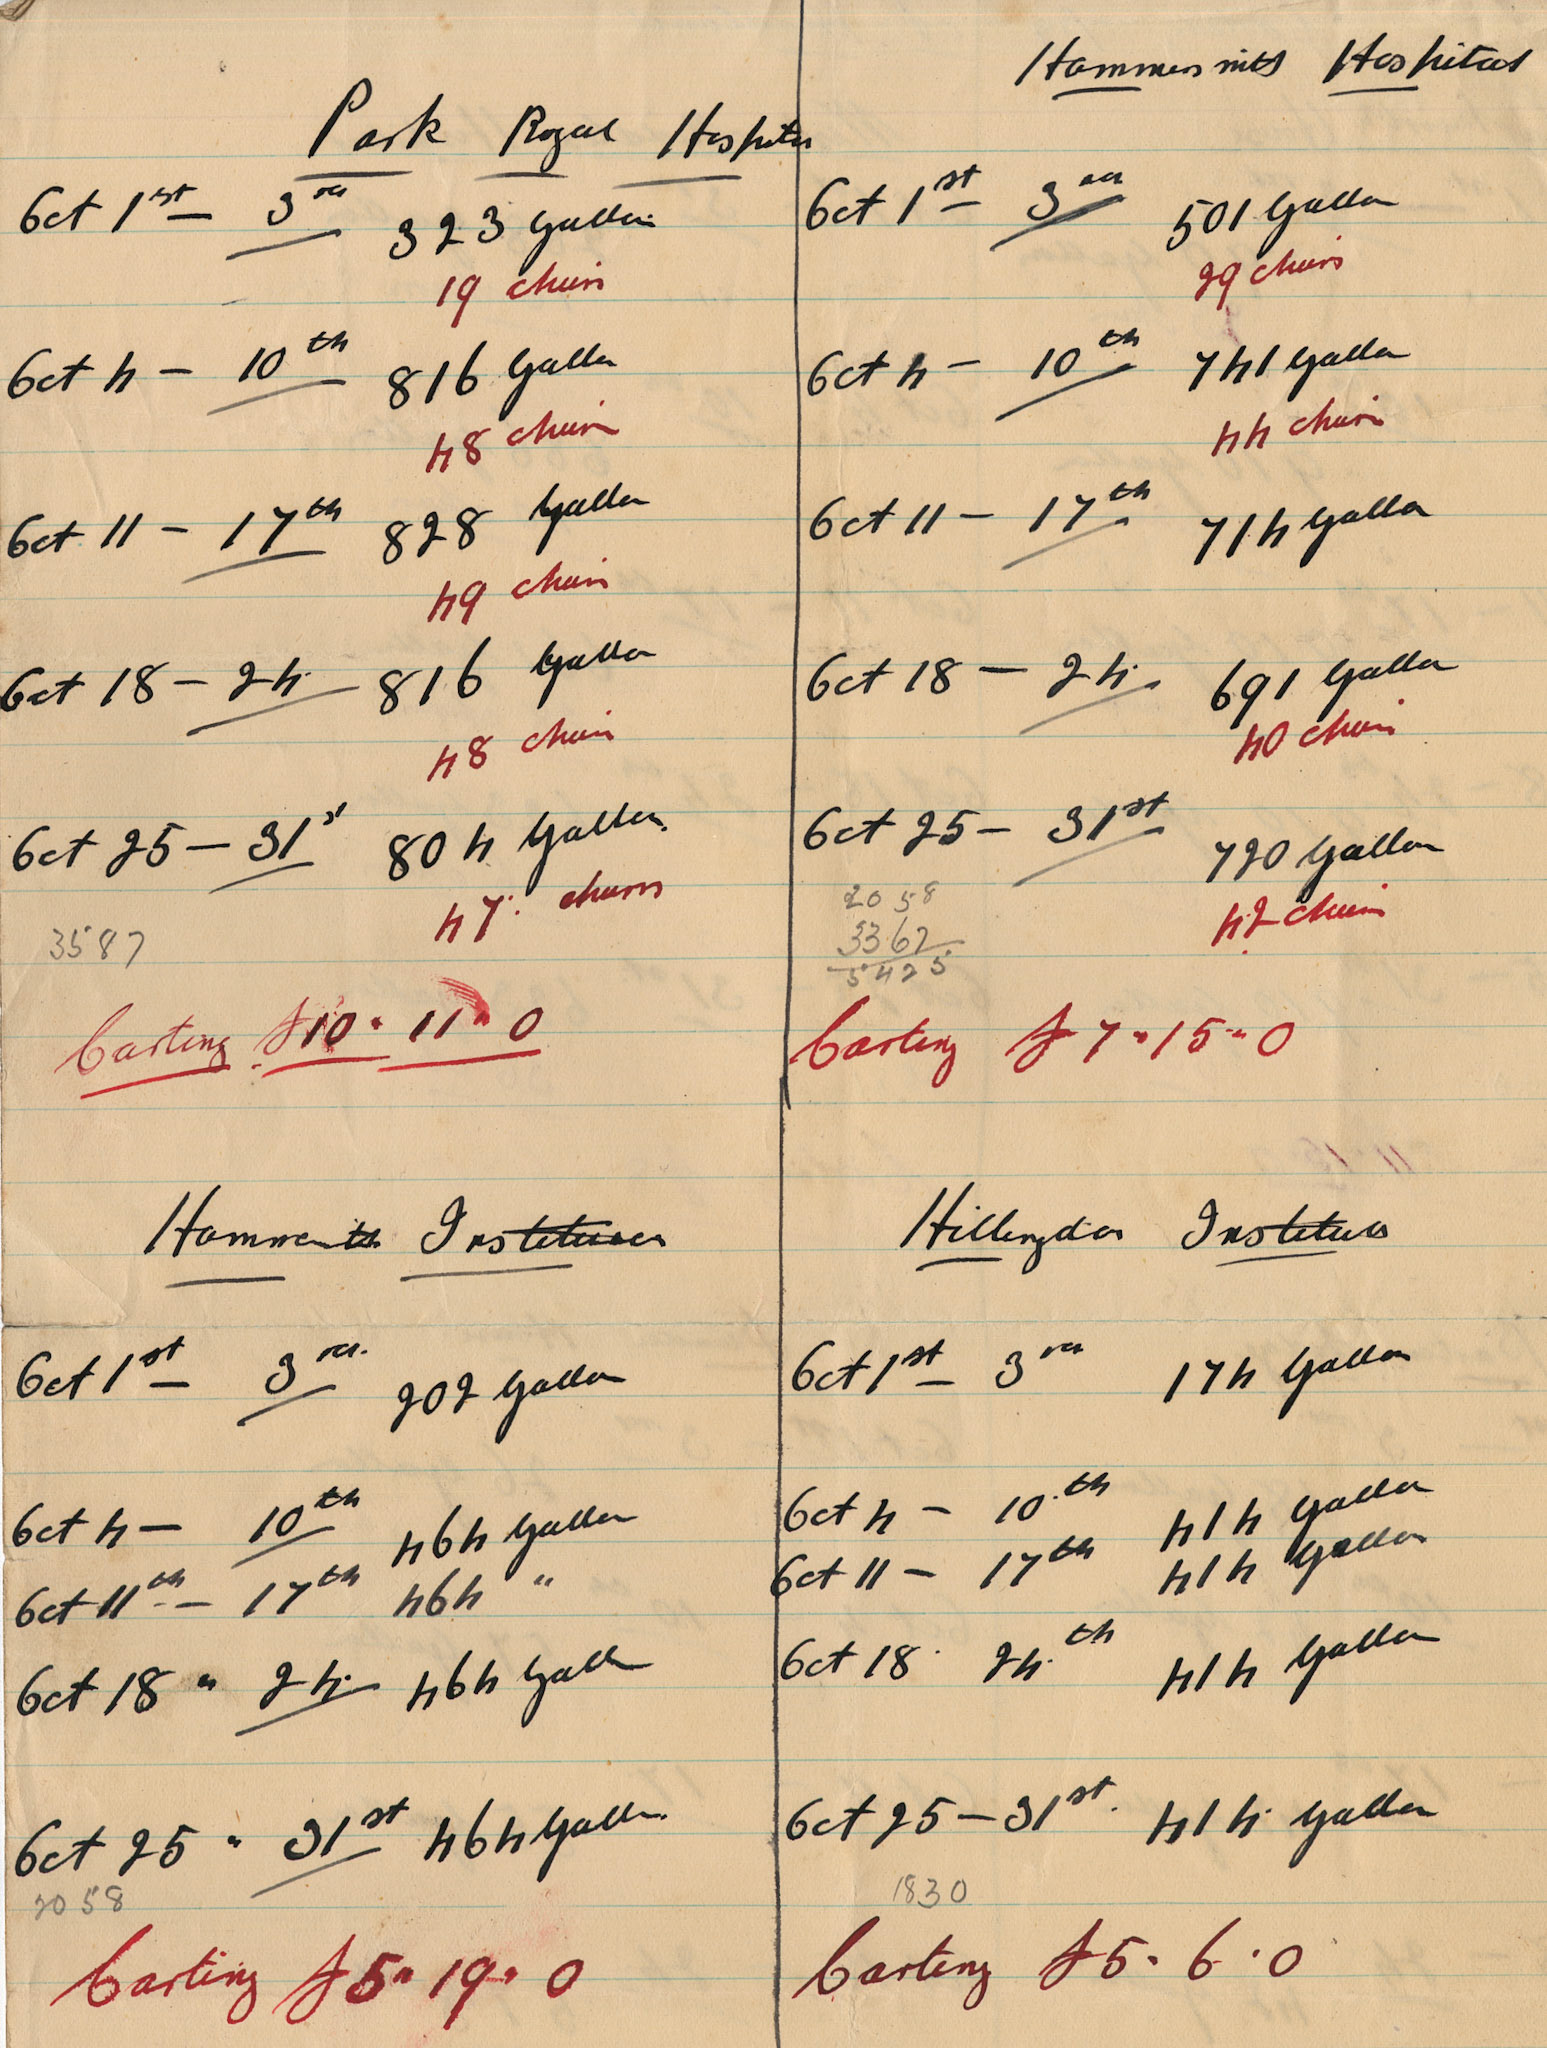 Park Royal Hospital
Oct 1st – 3rd 323 Gallon
19 churns
Oct 4 – 10th 816 Gallon
48 churn
Oct 11 – 17th 828 Gallon
49 churn
Oct 18 – 24. 816 Gallon
48 churn
Oct 25 – 31st 804 Gallon.
47. churns
3587
Carting £10 " 11 " 0
Hammersmith Hospital
Oct 1st – 3rd 501 Gallon
29 churns
Oct 4 – 10th 741 Gallon
44 churn
Oct 11 – 17th 714 Gallon
Oct 18 – 24. 691 Gallon
40 churn
Oct 25 – 31st 720 Gallon
42 churn
2058
3367
5425
Carting £7 " 15 " 0
Hammersmith Institution
Oct 1st – 3rd. 202 Gallon
Oct 4 – 10th 464 Gallon
Oct 11th – 17th 464 "
Oct 18 " 24. 464 Gall
Oct 25 " 31st 464 Gallon.
2058
Carting £5 " 19 " 0
Hillingdon Institution
Oct 1st – 3rd 174 Gallon
Oct 4 – 10th 414 Gallon
Oct 11 – 17th 414 Gallon
Oct 18 24th 414 Gallon
Oct 25 – 31st. 414 Gallon
1830
Carting £5 " 6 " 0